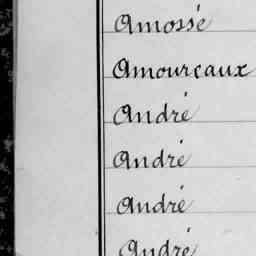 Amossé
Amourcaux
André
André
André
André